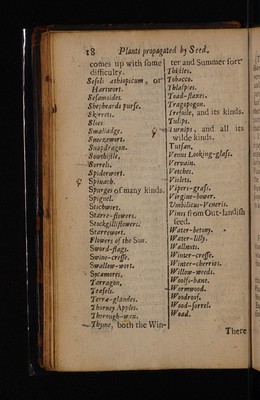 18 Plants propagated by Seed.
comes up with some
difficulty.
Seseli æthiopicum, or
Hartwort.
Sesamoides.
Shepheards purse.
Skirrets.
Sloes.
Smalladge.
Sneezewort.
Snapdragon.
Southistle,
Sorrels.
Spiderwort.
Spinach.
Spurges of many kinds.
Spignel.
Stichwort.
Starre-flowers.
Stockgilliflowers.
Starrewort.
Flowers of the Sun.
Sword-flags.
Swine-cresse.
Swallow-wort.
Sycamores,
Tarragon,
Teasels.
Terræ-glandes.
Thorney Apples.
Thorough-wex.
Thyme, both the Win-
ter and Summer sort.
Thistles.
Tobacco.
Thlaspies.
Toad-flaxes.
Tragopogon.
Trefoile, and its kinds.
Tulips.
Turnips, and all its
wilde kinds.
Tutsan,
Venus Looking-glass.
Vervain.
Vetches.
Violets.
Vipers-grass.
Virgine-bower.
Umbilicus-Veneris.
Vines from Out-landish
seed.
Water-betony.
Water-lilly.
Wallnuts.
Winter-cresse.
Winter-cherries.
Willow-weeds.
Woolfs-bane.
Wormwood.
Woodroof.
Wood-sorrel.
Woad.
There